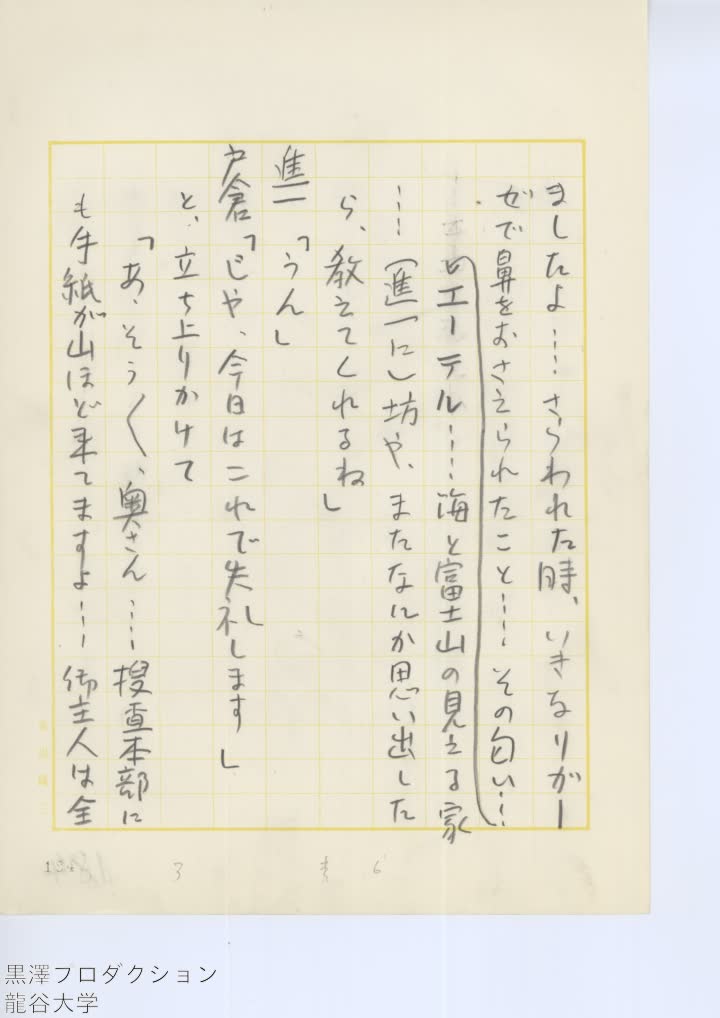 ましたよ……さらわれた時、いきなりガー
ゼで鼻をおさえられたこと……その匂い……
エーテル……海と富士山の見える家
……(進一に)坊や、またなにか思い出した
ら、教えてくれるね」
進一「うん」
戸倉「じゃ、今日はこれで失礼します」
と、立ち上りかけて
「あ、そう〱、奥さん……捜査本部に
も手紙が山ほど来てますよ……御主人は全
3
6
黒澤プロダクション
龍谷大学